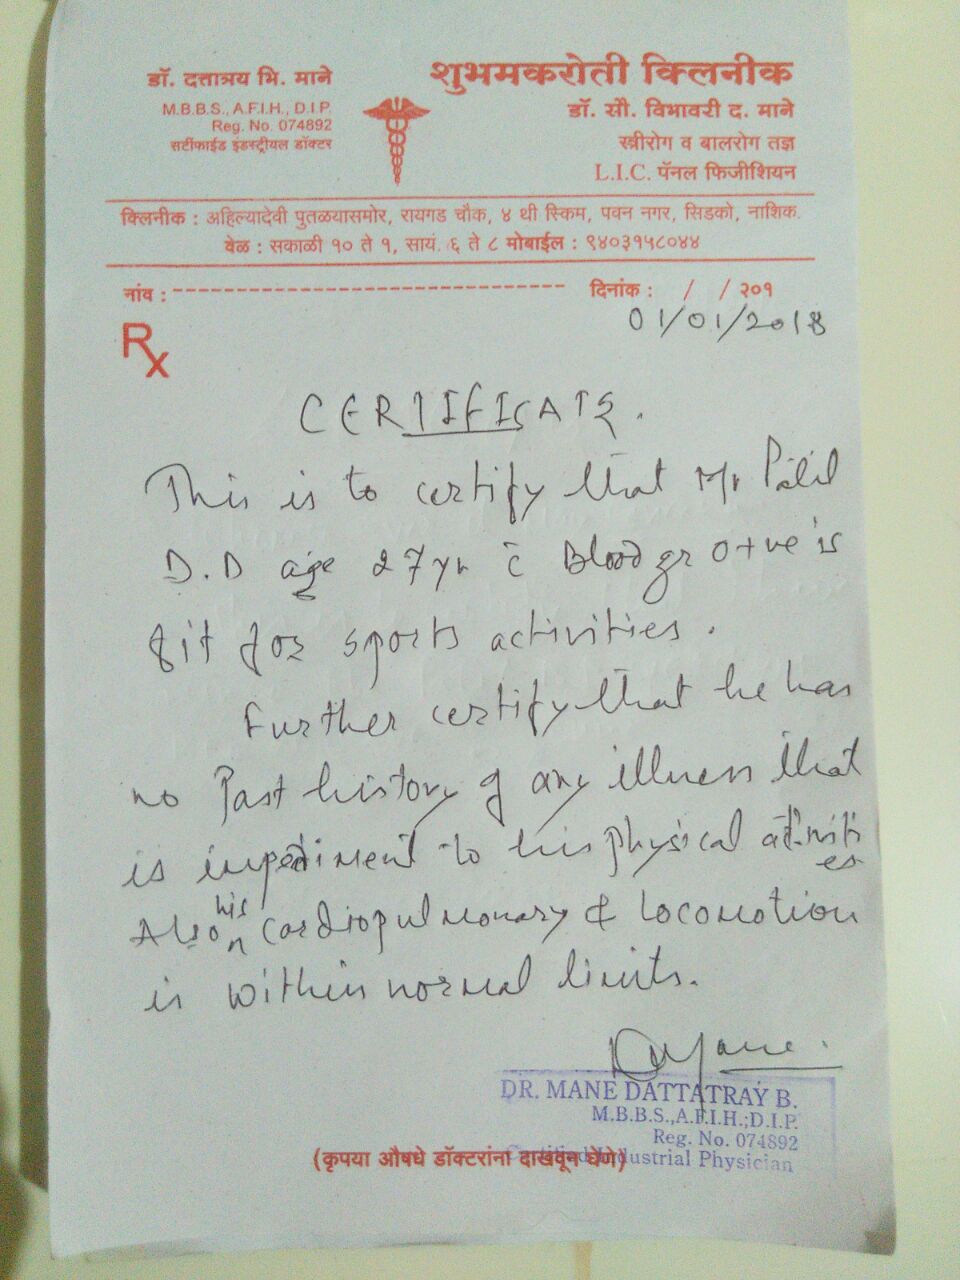 डॉ. दत्तात्रय भि. माने
M.B.B.S., A.F.I.H., D.I.P.
Reg. No. 074892
सर्टीफाईड इंडस्ट्रीयल डॉक्टर
शुभमकरोती क्लिनीक
डॉ. सौ. विभावरी द. माने
स्त्रीरोग व बालरोग तज्ञ
L.I.C. पॅनल फिजीशियन
क्लिनीक : अहिल्यादेवी पुतळयासमोर, रायगड चौक, ४ थी स्किम, पवन नगर, सिडको, नाशिक.
वेळ : सकाळी १० ते १, सायं. ६ ते ८ मोबाईल : ९४०३१५८०४४
नांव : दिनांक : / / २०१
01/01/2018
Rx
CERTIFICATE.
This is to certify that Mr Patil
D.D age 27 yr c̄ Blood gr O+ve is
fit for sports activities.
Further certify that he has
no Past history of any illness that
is impediment to his physical activities
Also his cardiopulmonary & locomotion
is within normal limits.
DR. MANE DATTATRAY B.
M.B.B.S.,A.F.I.H.;D.I.P.
Reg. No. 074892
Certified Industrial Physician
(कृपया औषधे डॉक्टरांना दाखवून घेणे)